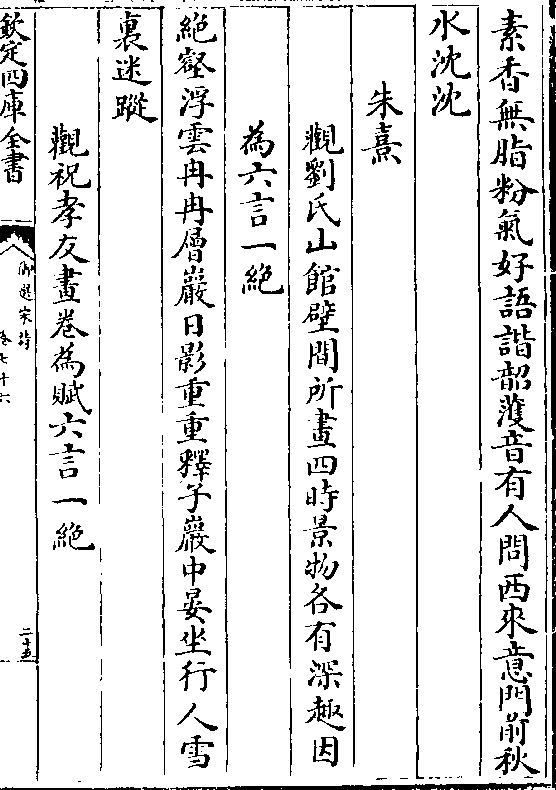 素香無脂粉氣好語諧韶濩音有人問西來意門前秋
水沈沈
朱熹
觀劉氏山館壁間所畫四時景物各有深趣因
為六言一絕
絶壑浮雲冉冉層巖日影重重釋子巖中晏坐行人雪
裏迷蹤
觀祝孝友畫卷為賦六言一絕
欽定四庫全書
御選宋詩
卷七十六
二十五